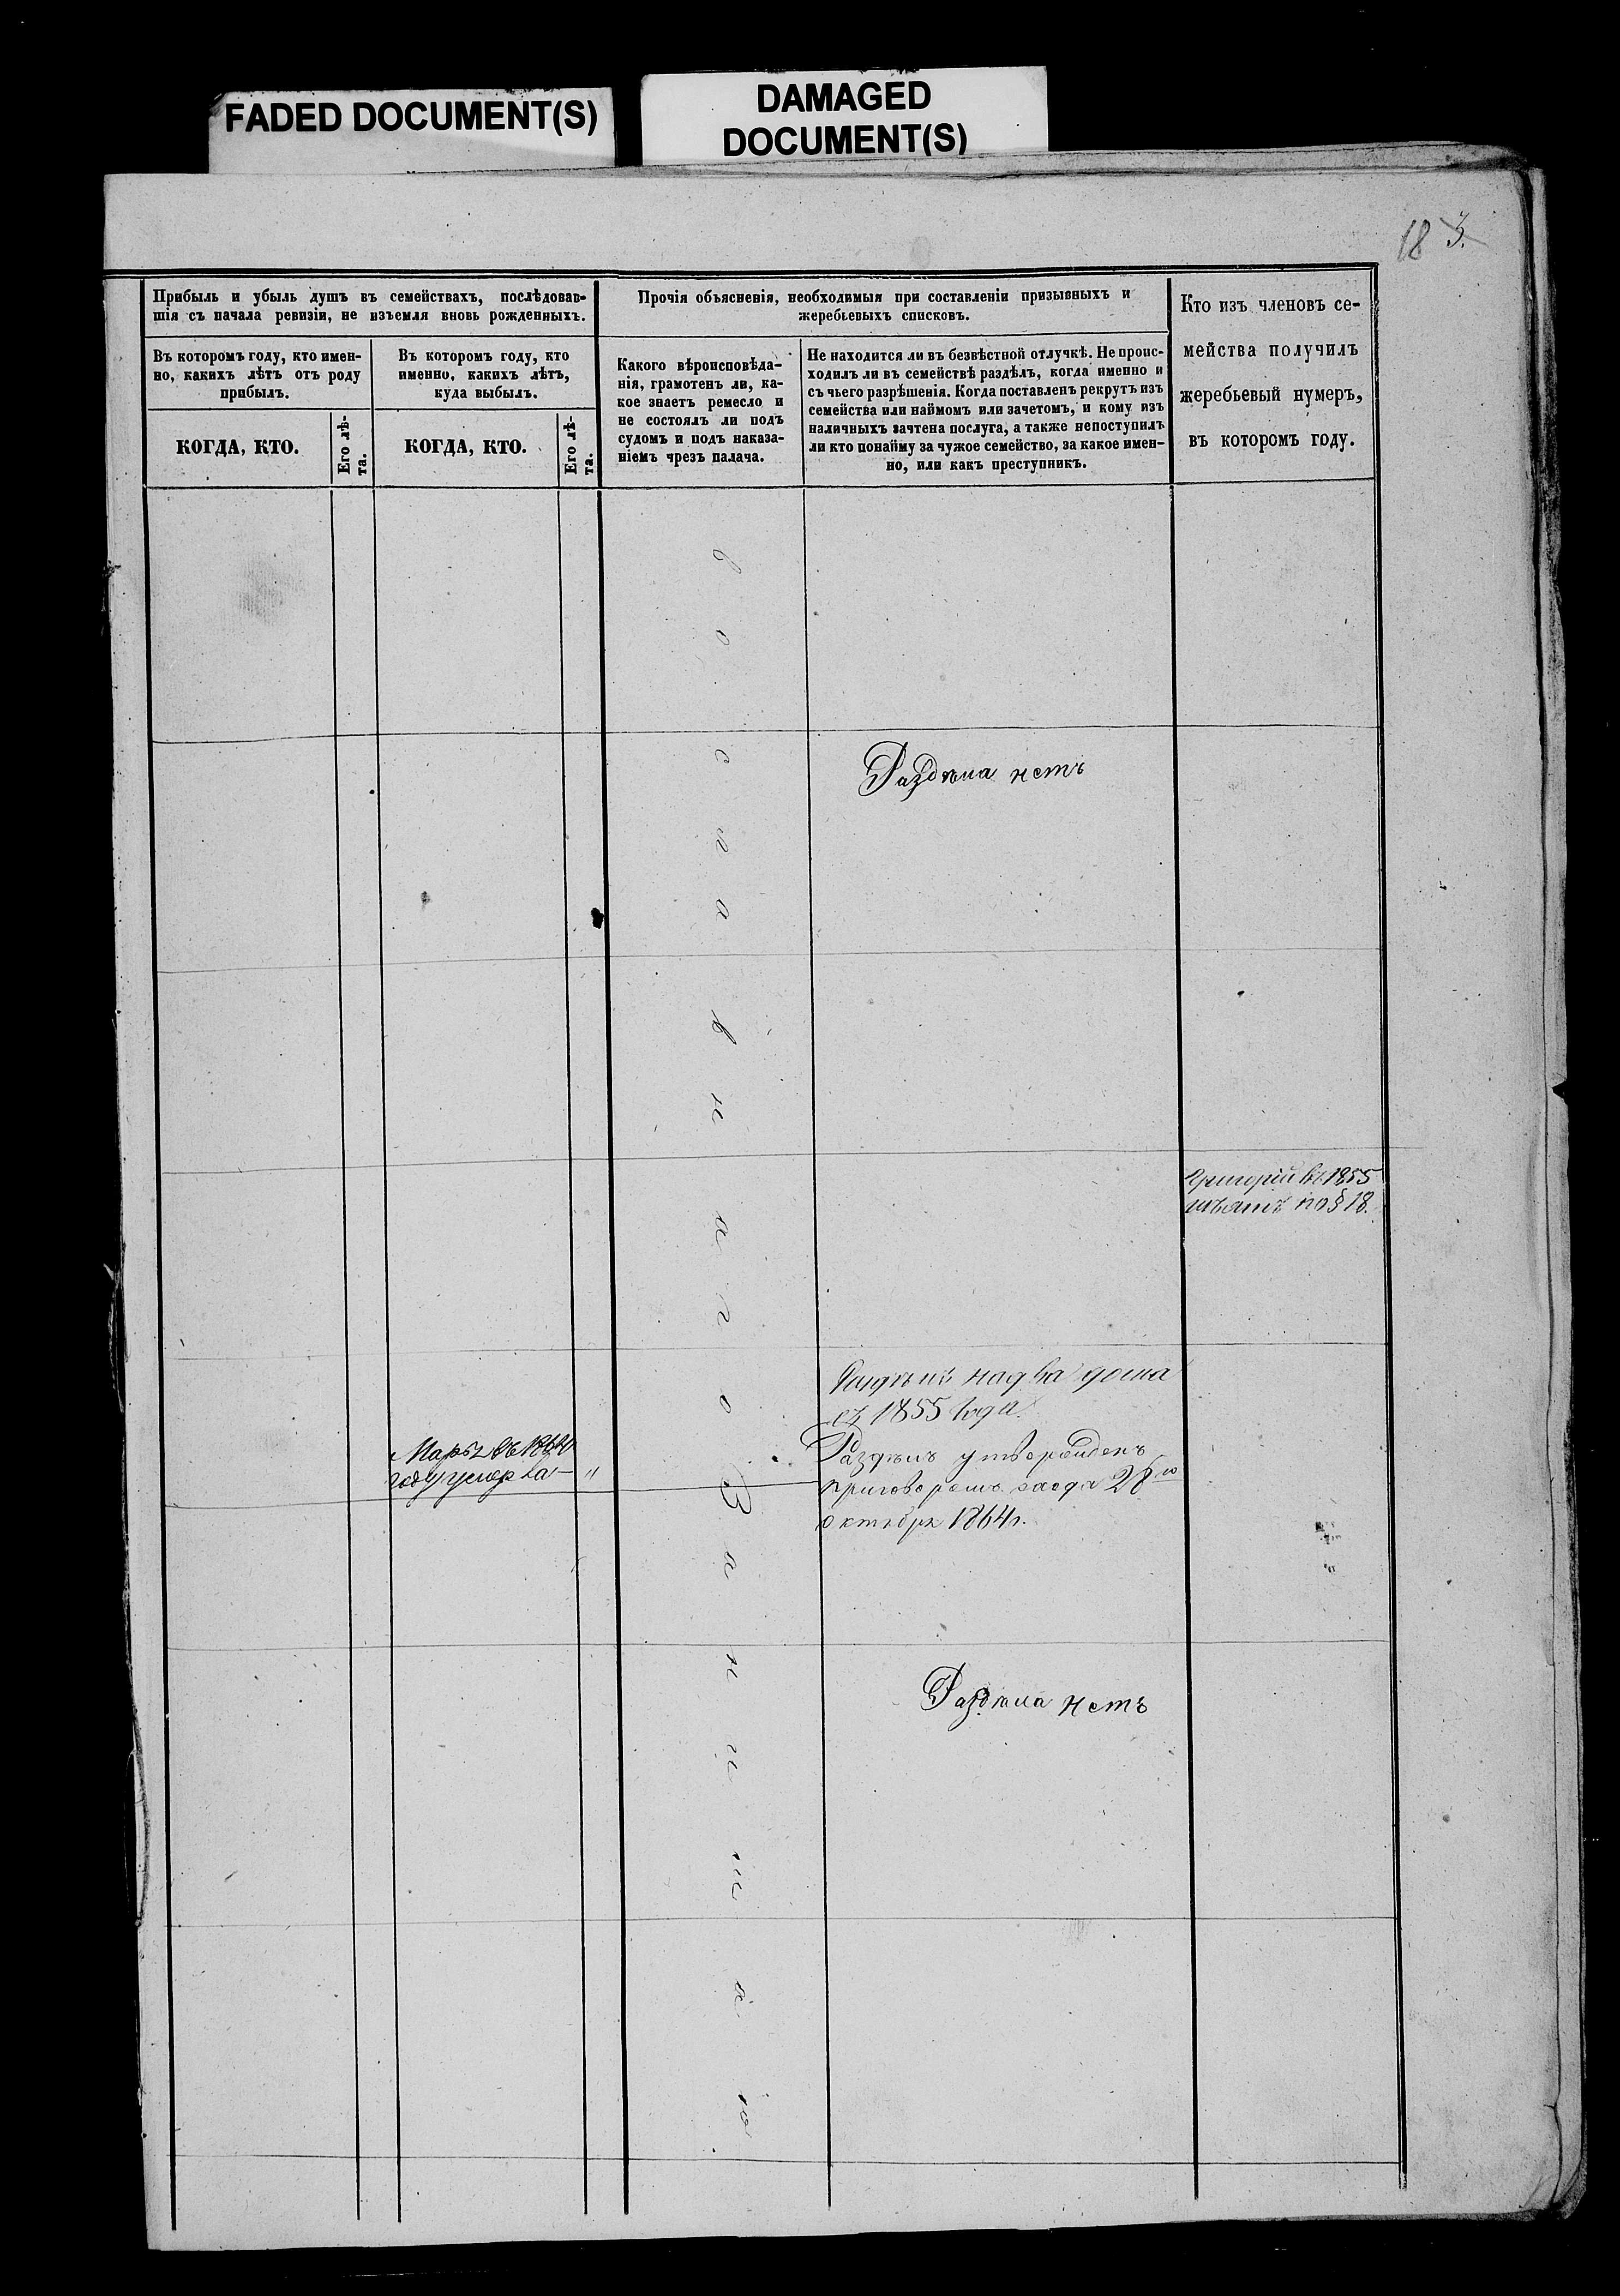 FADED DOCUMENT(S)
DAMAGED
DOCUMENT(S)
18 3.
Прибыль и убыль душъ въ семействахъ, послѣдовав-
шія съ начала ревизіи, не изъемля вновь рожденныхъ.
Прочія объясненія, необходимыя при составленіи призывныхъ и
жеребьевыхъ списковъ.
Кто изъ членовъ се-
мейства получилъ
жеребьевый нумеръ,
въ которомъ году.
Въ которомъ году, кто имен-
но, какихъ лѣтъ отъ роду
прибылъ.
Въ которомъ году, кто
именно, какихъ лѣтъ,
куда выбылъ.
Какого вѣроисповѣда-
нія, грамотенъ ли, ка-
кое знаетъ ремесло и
не состоялъ ли подъ
судомъ и подъ наказа-
ніемъ чрезъ палача.
Не находится ли въ безвѣстной отлучкѣ. Не проис-
ходилъ ли въ семействѣ раздѣлъ, когда именно и
съ чьего разрѣшенія. Когда поставленъ рекрутъ изъ
семейства или наймомъ или зачетомъ, и кому изъ
наличныхъ зачтена послуга, а также непоступилъ
ли кто понайму за чужое семейство, за какое имен-
но, или какъ преступникъ.
КОГДА, КТО.
Его лѣ-
та.
КОГДА, КТО.
Его лѣ-
та.
Раздѣла нетъ
Григорій въ 1855
по § 18.
Раздѣлъ на два дома
съ 1855 года.
Раздѣлъ утвержденъ
приговоромъ схода 28го
октября 1864 г.
Марья въ 1864
году умерла — "
Раздѣла нетъ